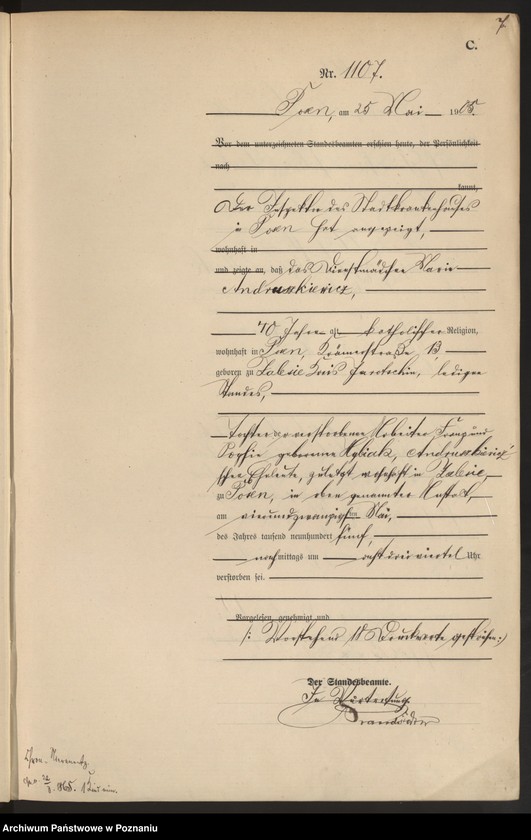 7
C.
Nr. 1107.
Posen, am 25 Mai 1905.
Vor dem unterzeichneten Standesbeamten erschien heute, der Persönlichkeit
nach
kannt,
Der Inspektor des Stadtkrankenhauses
in Posen hat angezeigt,
wohnhaft in
und zeigte an, daß das Dienstmädchen Marie
Andruszkiewicz,
70 Jahre alt, katholischer Religion,
wohnhaft in Posen, Krämerstraße 13,
geboren zu Zalesie Kreis Jarotschin, ledigen
Standes,
Tochter der verstorbenen Arbeiter Franz und
Sophie geborene Andruszkiewicz
schen Eheleute, zuletzt wohnhaft in Zalesie,
zu Posen, in der genannten Anstalt
am vierundzwanzigsten Mai,
des Jahres tausend neunhundert fünf,
nachmittags um acht drei viertel Uhr
verstorben sei.
Vorgelesen, genehmigt und
/: Vorstehend Druckworte gestrichen :/
Der Standesbeamte.
In Vertretung.
Archiwum Państwowe w Poznaniu